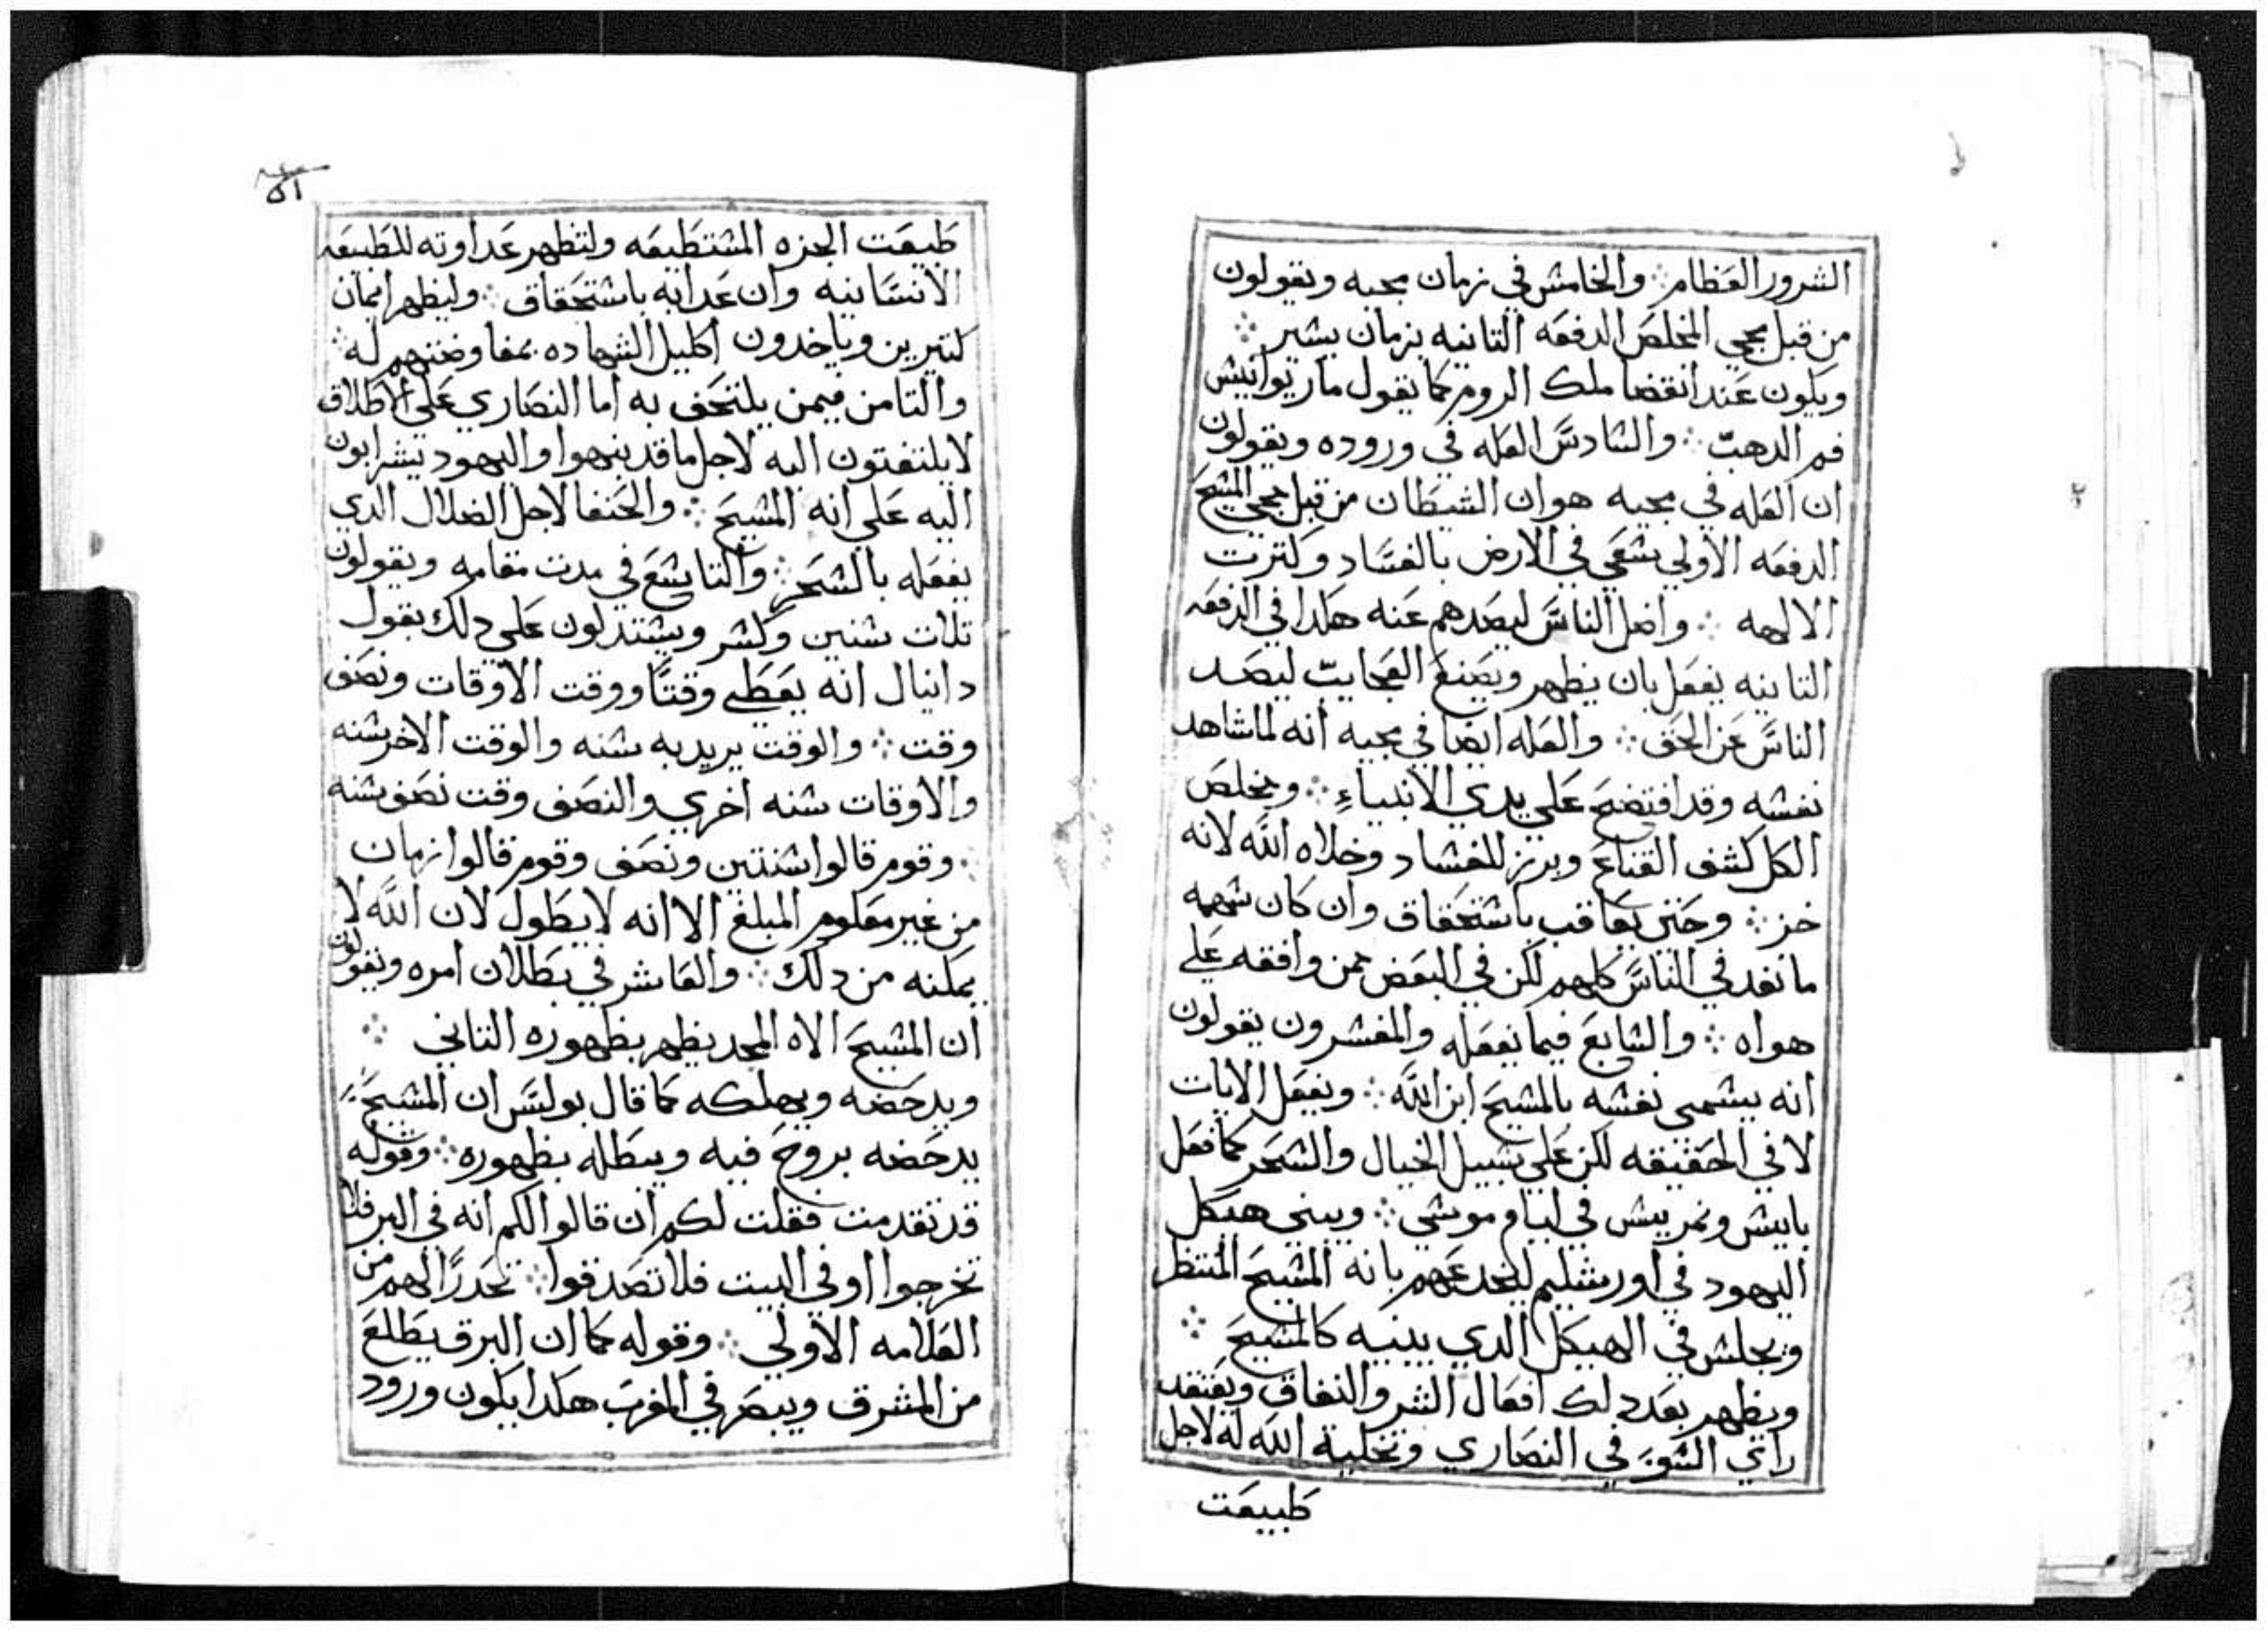 الشرور العظام ⁘ والخامس في زمان مجيه ويقولون
من قبل مجي المخلص الدفعه التانيه بزمان يسير ⁘
ويكون عند انقضا ملك الروم كما يقول ماريوانيس
فم الدهب ⁘ والسادس العله في وروده ويقولون
ان العله في مجيه هو ان الشيطان من قبل مجي المسيح
الدفعه الاولي سعي في الارض بالفساد وكترت
الالهه ⁘ واضل الناس ليصدهم عنه هكدا في الدفعه
التانيه يفعل بان يظهر ويصنع العجايب ليصد
الناس عن الحق ⁘ والعله ايضا في مجيه انه لما شاهد
نفسه وقد افتضح علي يدي الانبياء ⁘ ويخلص
الكل كشف القناع وبرز للفساد وخلاه الله لانه
خز ⁘ وحتي يعاقب باستحقاق وان كان سهمه
ما نفد في الناس كلهم لكن في البعض ممن وافقه علي
هواه ⁘ والسابع فيما يفعله والمفسرون يقولون
انه يسمي نفسه بالمسيح ابن الله ⁘ ويفعل الايات
لا في الحقيقه لكن علي سبيل الخيال والسحر كما فعل
يانيس ونمرييس في ايام موسي ⁘ ويبني هيكل
اليهود في اورشليم ليخدعهم بانه المسيح المنتظر
ويجلس في الهيكل الدي يبنيه كالمسيح ⁘
ويظهر بعد دلك افعال الشر والنفاق ويفتقد
راي السو في النصاري وتخلية الله له لاجل
طبيعت
٥١
طبيعت الجزه المستطيعه ولتظهر عداوته للطبيعه
الانسانيه وان عدابه باستحقاق ⁘ وليظهر ايمان
كتيرين وياخدون اكليل الشهاده بمفاوضتهم له ⁘
والتامن فيمن يلتحف به اما النصاري علي الاطلاق
لا يلتفتون اليه لاجل ما قد ينهوا واليهود يشرابون
اليه علي انه المسيح ⁘ والحنفا لاجل الضلال الدي
يفعله بالسحر ⁘ والتاسع في مدت مقامه ويقولون
تلات سنين وكسر ويستدلون علي دلك بقول
دانيال انه يعطي وقتًا ووقت الاوقات ونصف
وقت ⁘ والوقت يريد به سنه والوقت الاخر سنه
والاوقات سنه اخري والنصف وقت نصف سنه
⁘ وقوم قالوا سنتين ونصف وقوم قالوا زمان
من غير معلوم المبلغ الا انه لا يطول لان الله لا
يمكنه من دلك ⁘ والعاشر في بطلان امره ويقولون
ان المسيح الاه المجد يظهر بظهوره التاني ⁘
ويدحضه ويهلكه كما قال بولس ان المسيح
يدحضه بروح فيه ويبطله بظهوره ⁘ وقوله
قد تقدمت فقلت لكم ان قالوا لكم انه في البر فلا
تخرجوا او في البيت فلا تصدقوا ⁘ تحدرًا لهم من
العلامه الاولي ⁘ وقوله كما ان البرق يطلع
من المشرق ويبصر في المغرب هكدا يكون ورود